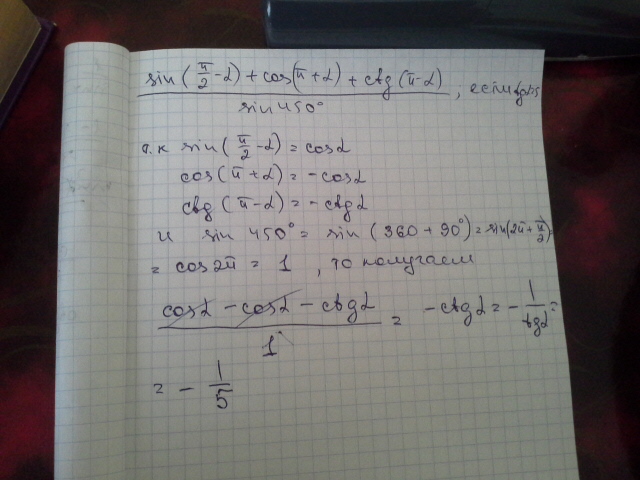 sin(π/2 - α) + cos(π + α) + ctg(π - α) / sin 450° , если tgα=5
т.к sin(π/2 - α) = cosα
cos(π + α) = -cosα
ctg(π - α) = -ctgα
и sin 450° = sin(360 + 90°) = sin(2π + π/2) =
= cos2π = 1 , то получаем
cosα - cosα - ctgα / 1 = -ctgα = - 1/tgα =
= - 1/5